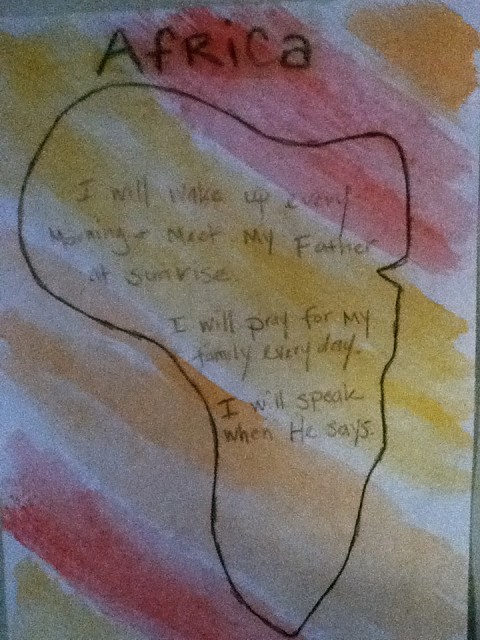 AfRiCa
I will wake up every
Morning + Meet My Father
at sunrise.
I will pray for My
family every day.
I will speak
when He says.